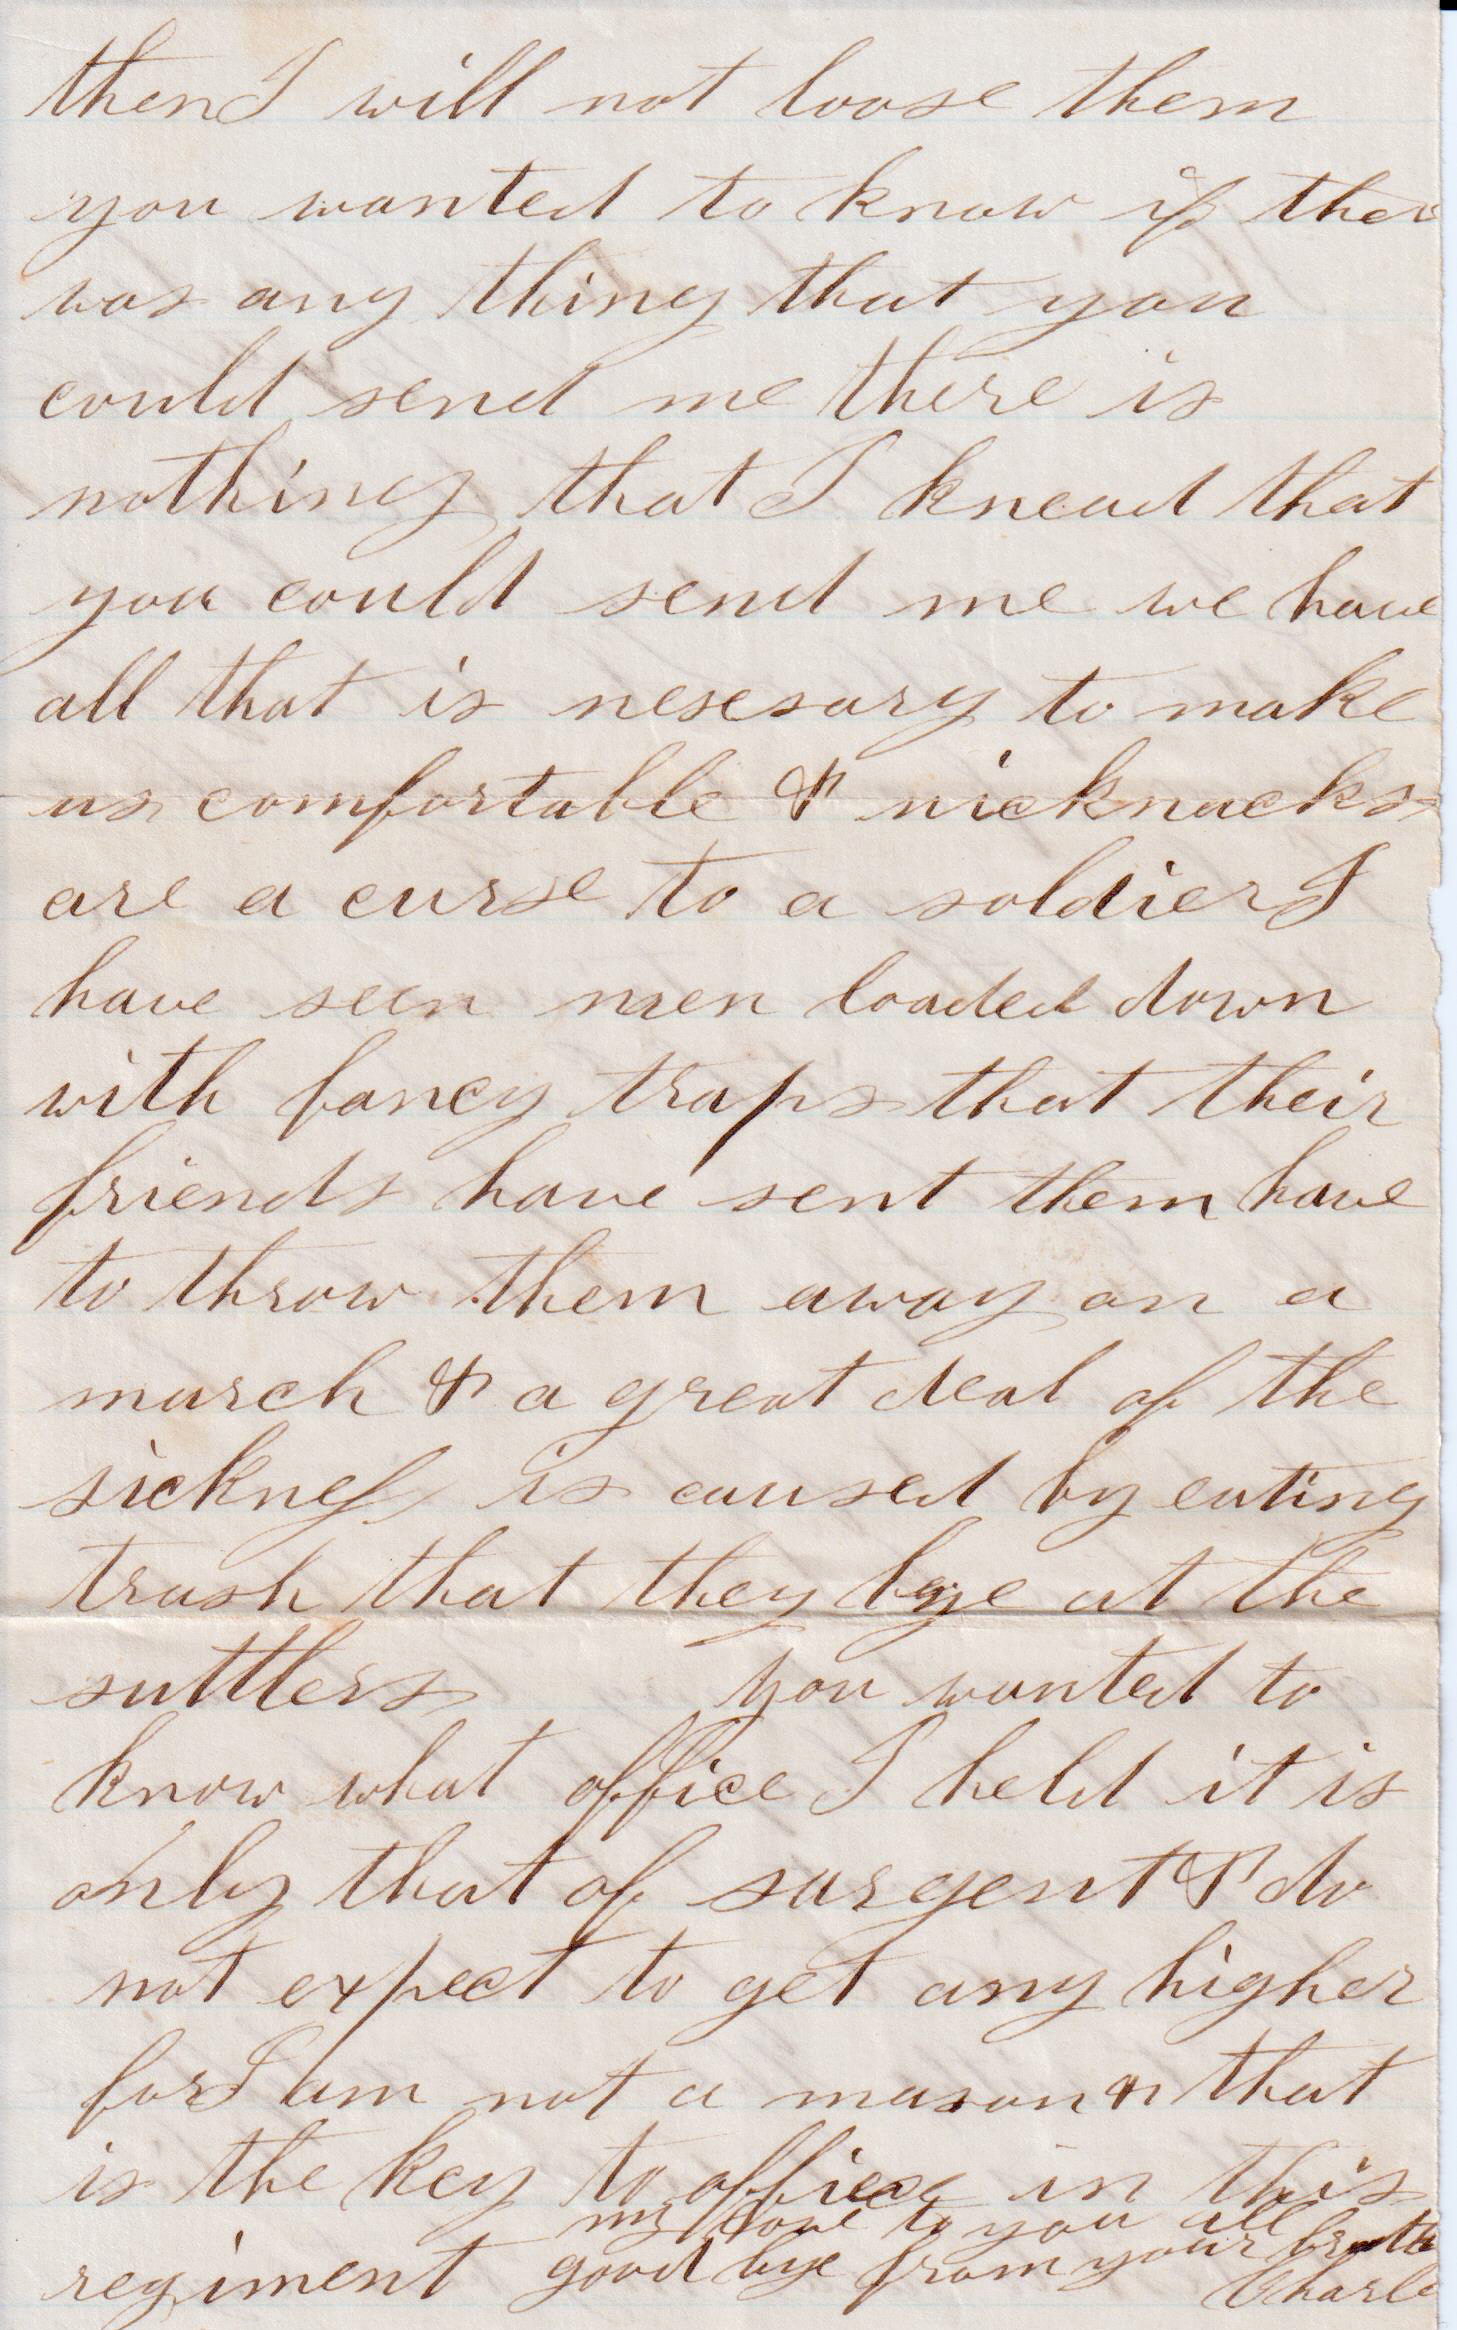 then I will not loose them
you wanted to know if ther
was any thing that you
could send me there is
nothing that I knead that
you could send me we have
all that is nesesary to make
us comfortable & nicknacks
are a curse to a soldier I
have seen men loaded down
with fancy traps that their
friends have sent them have
to throw them away on a
march & a great deal of the
sickness is caused by eating
trash that they bye at the
suttlers you wanted to
know what office I held it is
only that of sargent & do
not expect to get any higher
for I am not a mason & that
is the key to office in this
my love to you all
regiment good bye from your broth
Charle